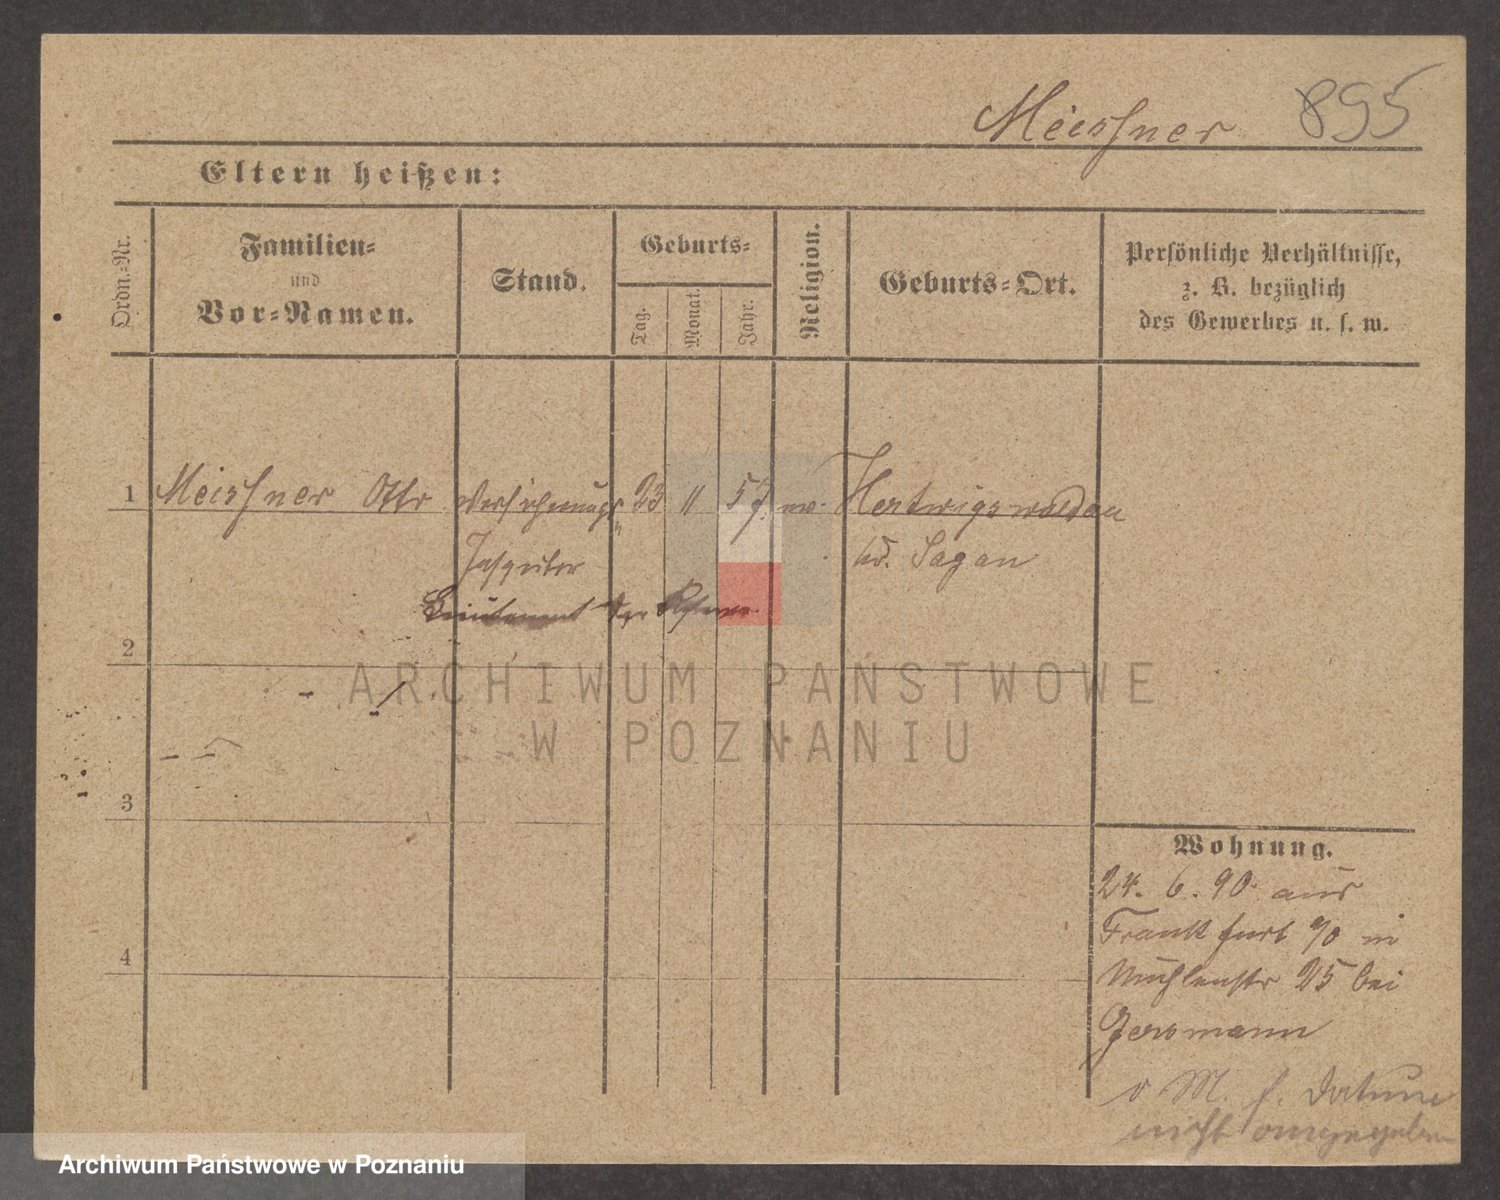 Meissner 895
Eltern heißen:
Ordn.-Nr.
Familien-
und
Vor-Namen.
Stand.
Geburts-
Tag.
Monat.
Jahr.
Religion.
Geburts-Ort.
Persönliche Verhältnisse,
z. B. bezüglich
des Gewerbes u. s. w.
1 Meissner Otto Versicherungs 23 11 57 ev. Hertwigswaldau
Inspector Kr. Sagan
Lieutenant der Reserve
2
ARCHIWUM PAŃSTWOWE
W POZNANIU
3
Wohnung.
24. 6. 90 aus
Frankfurt %o in
Mühlenstr 25 bei
Gersmann
4
v M. f. Datum
nicht angegeben
Archiwum Państwowe w Poznaniu